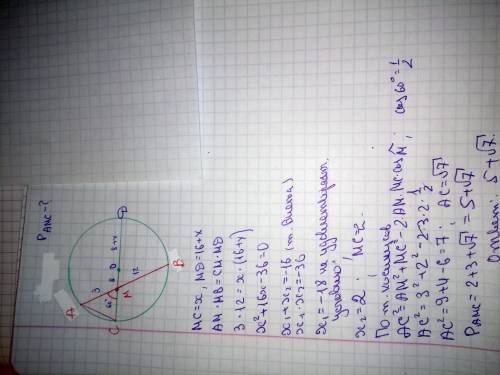 P_AMC - ?
A
3
60°
C
M
8
O
8+x
D
12
B
MC = x, MD = 16 + x
AM · MB = CM · MD
3 · 12 = x · (16 + x)
x² + 16x - 36 = 0
x₁ + x₂ = -16 (т. Виета)
x₁ · x₂ = -36
x₁ = -18 не удовлетворяет
условию
x₂ = 2, MC = 2.
По т. косинусов
AC² = AM² + MC² - 2·AM·MC·cos M; cos 60° = 1/2
AC² = 3² + 2² - 2·3·2·1/2
AC² = 9 + 4 - 6 = 7; AC = √7
P_AMC = 2 + 3 + √7 = 5 + √7
Ответ: 5 + √7